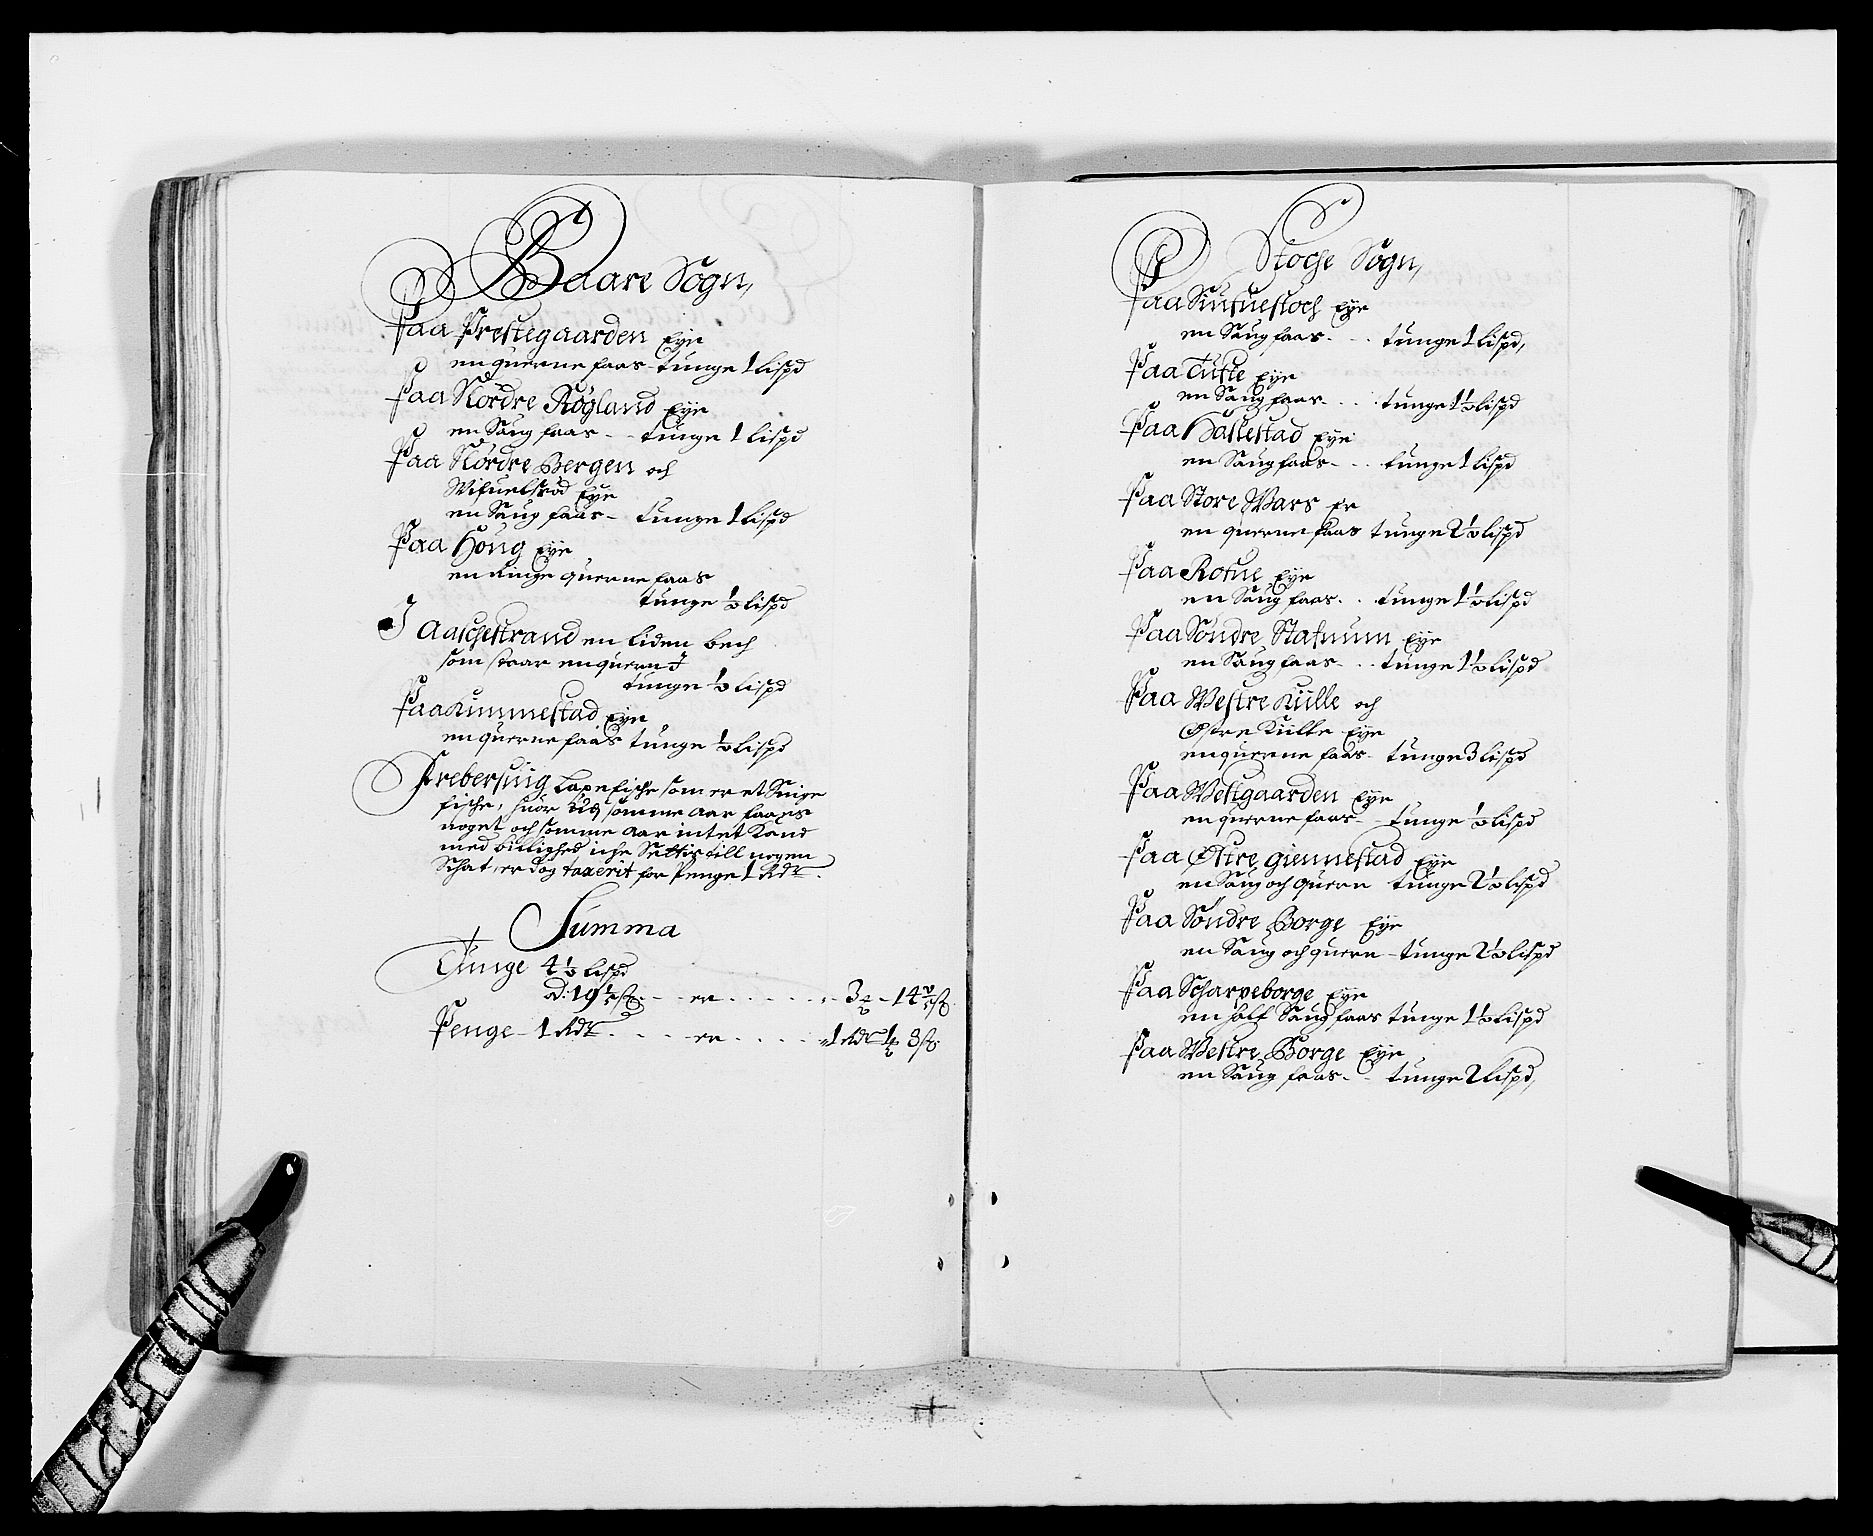 Baare Sogn,
Paa Prestegaarden Eye
en querne faas - tunge 1 lispd
Paa Nordre Røgland Eye
en Saug faas - - tunge 1 lispd
Paa Nordre Bergen och
Wifuelsrød Eye
en Saug faas - tunge 1 lispd
Paa Houg Eye
en Ringe querne faas
tunge ½ lispd
J Aaschestrand en liden bech
som staar en quern J
tunge ½ lispd
Paa Kimmestad Eye
en querne faas tunge ½ lispd
Laxefische som er et Snige
fische, huor somme aar faaes
noget och somme aar intet Kand
med billighed iche Settis till nogen
Schat, er dog taxerit for Penge 1 Rdr.
Summa
Tunge 4½ lispd
ad: 19 - - er - - - 3 - 14
Penge - 1 Rdr - - - er - - - 1 Rdr 3
Stoche Sogn,
Paa Eye
en Saug faas - - - tunge 1 lispd,
Paa Tufte Eye
en Saug faas - - - tunge 1½ lispd
Paa Hassestad Eye
en Saug faas - - - tunge 1 lispd
Paa Store Wars er
en querne faas tunge 2½ lispd
Paa Rofue Eye
en Saug faas - - tunge 1½ lispd
Paa Søndre Stafnum Eye
en Saug faas - - - tunge 1½ lispd
Paa Westre Külle och
Østre Külle Eye
en querne faas - tunge 3 lispd
Paa Westgaarden Eye
en querne faas - - tunge ½ lispd
Paa Østre giennestad Eye
en Saug och quern tunge 2½ lispd
Paa Søndre Borge Eye
en Saug och quern - tunge 2½ lispd
Paa Scharpeborge Eye
en half Saug faas tunge 1½ lispd
Paa Westre Borge Eye
en Saug faas - - tunge 2 lispd,